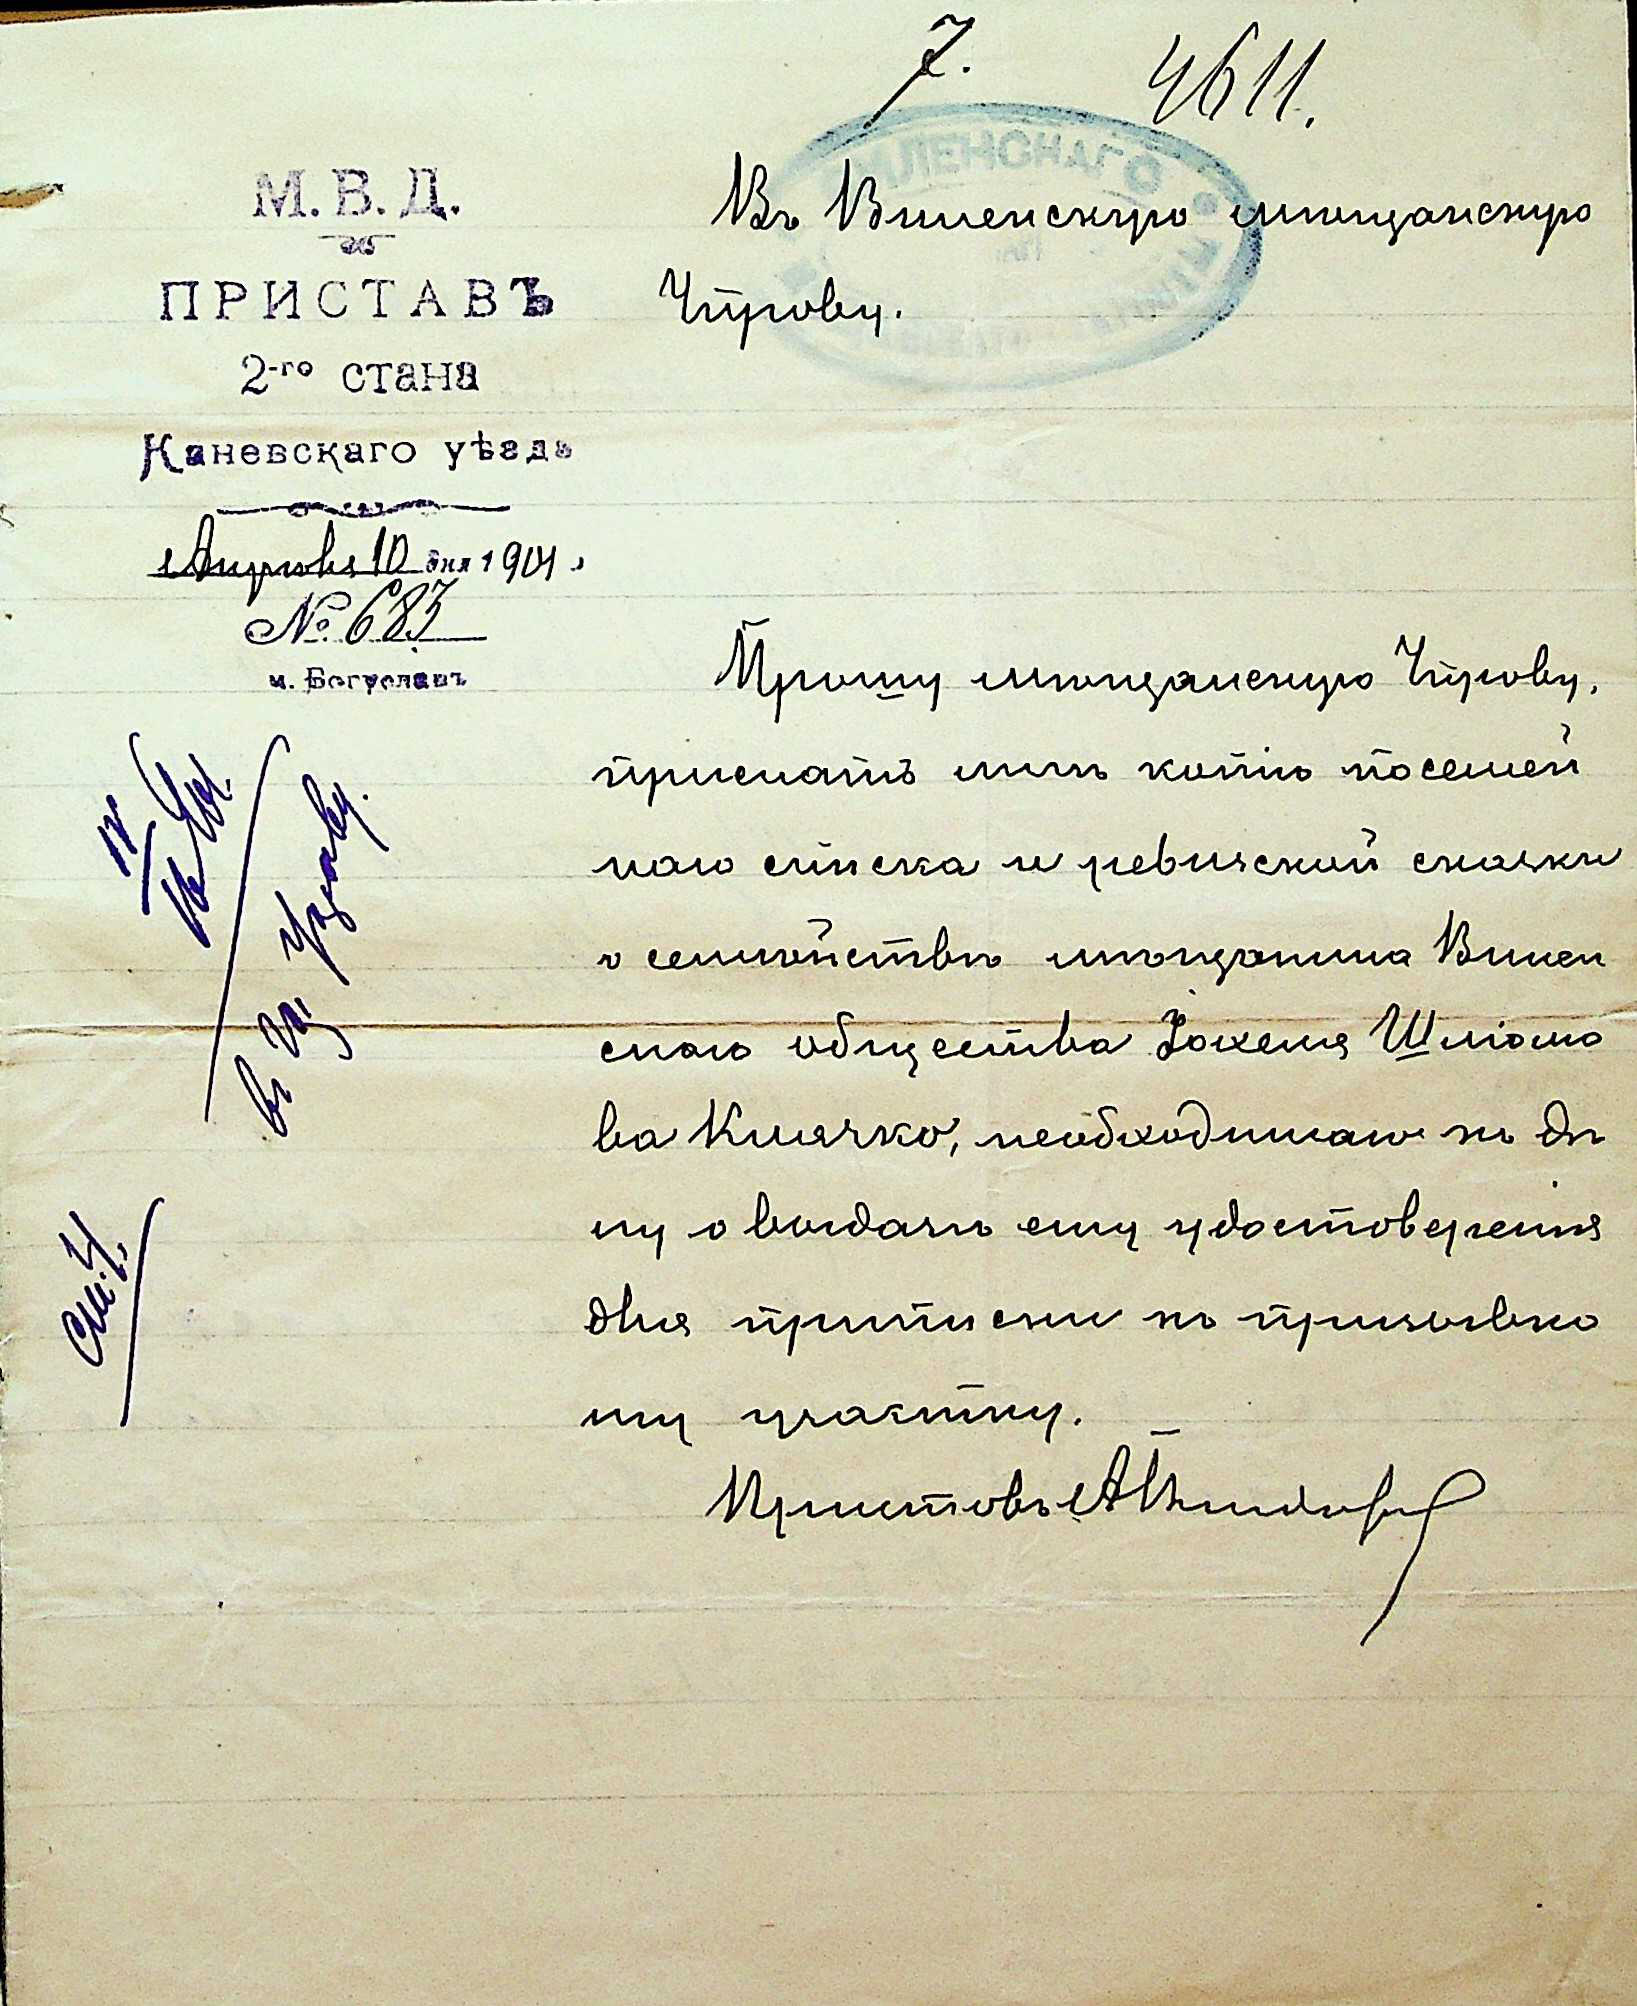 7. 4611.
М. В. Д.
ПРИСТАВЪ
2-го стана
Каневскаго уѣзда
Апрѣля 10 дня 1901 г.
№ 683
м. Богуславъ
ВИЛЕНСКАГО
Въ Виленскую мѣщанскую
Управу.
Прошу мѣщанскую Управу,
прислать мнѣ копію посемей
наго списка и ревизской сказки
о семействѣ мѣщанина Вилен
скаго общества Хохеля Шліомо
ва Клячко, необходимаго къ дѣ
лу о выдачѣ ему удостоверенія
для приписки къ призывно
му участку.
Приставъ
въ Мѣщ. управу.